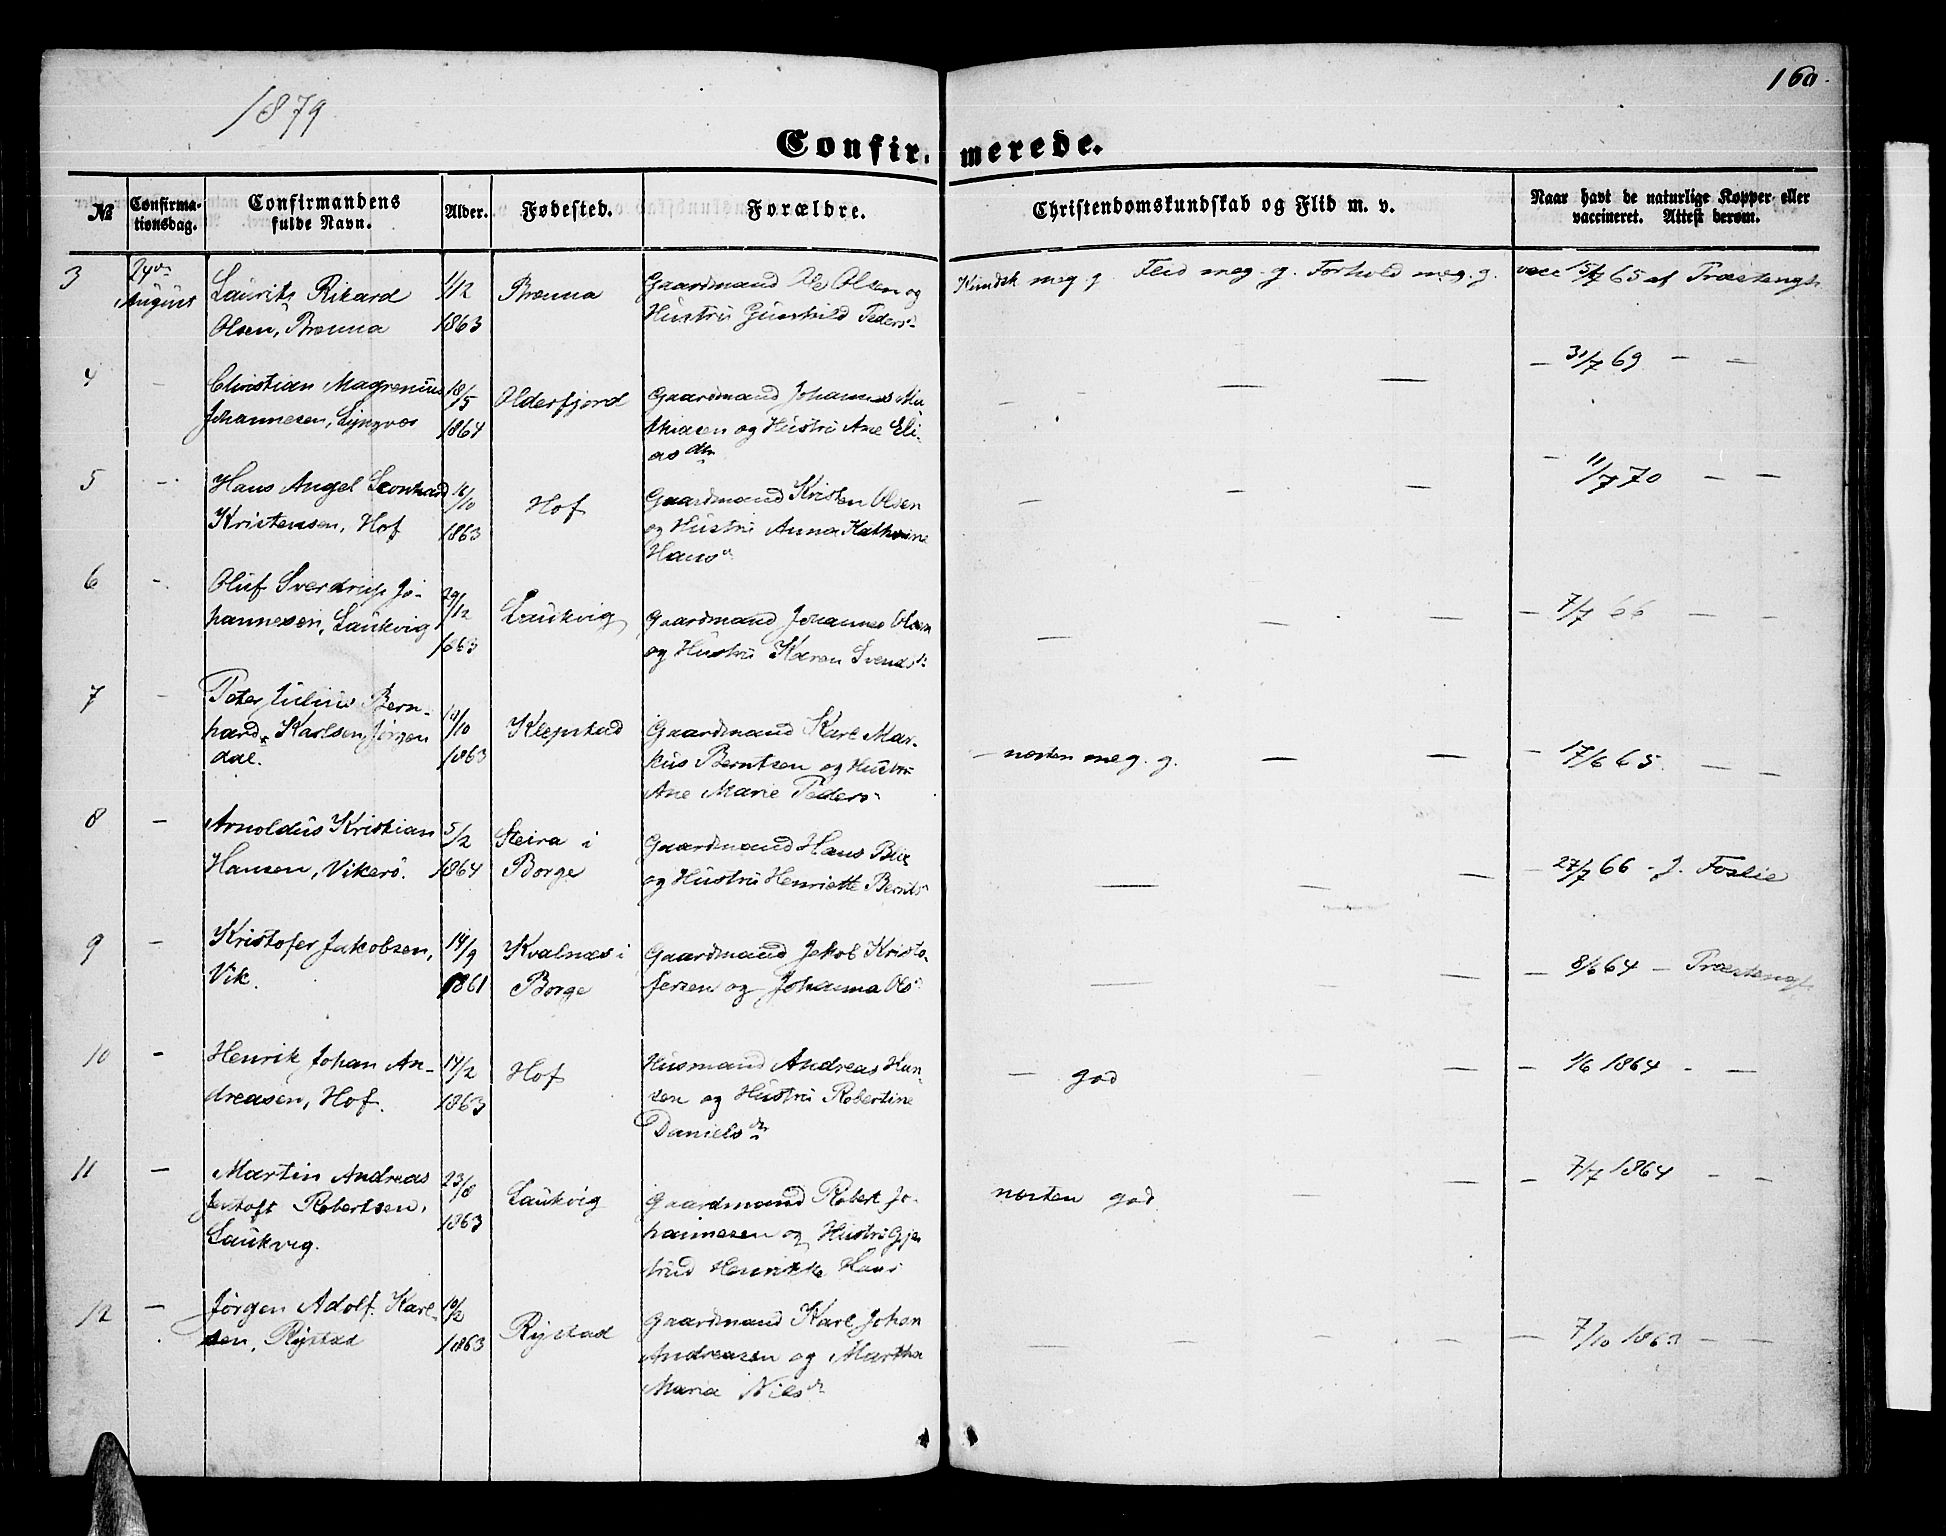 160.
1879
Confir. merede.
№ Confirma-tionsdag. Confirmandens fulde Navn. Alder. Fødested. Forældre. Christendomskundskab og Flid m. v. Naar havt de naturlige Kopper eller vaccineret. Attest derom.
3 24de August Laurits Rikard 1/12 Brenna Gaardmand Ole Olsen og Kundsk meg g. Flid meg. g. Forhold meg. g. vacc 15/7 65 af Præstengb
Olsen, Brenna 1863 Hustru Gunhild Peders
4 - Christian Magrenius 18/5 Olderfjord Gaardmand Johannes Ma- - - - - - 31/7 69 - -
Johannesen, Lyngvær 1864 thiasen og Hustru Ane Eli-
as dtr
5 - Hans Angel Leonhard 16/10 Hof Gaardmand Kristen Olsen - - - - 11/7 70 - -
Kristensen, Hof 1863 og Hustru Anna Kathrine
Hans
6 - Oluf Sverdrup Jo- 29/12 Laukvig Gaardmand Johannes Olsen - - - - 7/7 66 - -
hannesen, Laukvig 1863 og Hustru Karen Svends
7 - Peter Julius Bern- 10/10 Klepstad Gaardmand Karl Mar- - nesten meg. g. - - - 17/6 65. - -
hard Karlsen, Jörgen 1863 kus Berntsen og Hustru
dal. Ane Marie Peders
8 - Arnoldus Kristian 5/2 Steira i Gaardmand Hans Blix - - - - 27/7 66 - J. Foslie
Hansen, Vikerö. 1864 Borge og Hustru Henriette Bernts
9 - Kristofer Jakobsen, 14/9 Kvalnæs i Gaardmand Jakob Kristo- - - - - 8/6 64 - Præstengb.
Vik. 1861 Borge fersen og Johanna Ols
10 - Henrik Johan An- 14/2 Hof Husmand Andreas Han- - god - - - 1/6 1864 - -
dreasen, Hof. 1863 sen og Hustru Robertine
Daniels dr
11 - Martin Andreas 23/8 Laukvig Gaardmand Robert Jo- nesten god - - - 7/7 1864 - -
Jentoft Robertsen, 1863 hannesen og Hustru Gje
Laukvig. trud Henrikke Hans
12 - Jörgen Adolf Karl- 10/2 Rystad Gaardmand Karl Johan - - - - 7/10 1863 - -
sen, Rystad 1863 Andreasen og Martha
Maria Nils dr